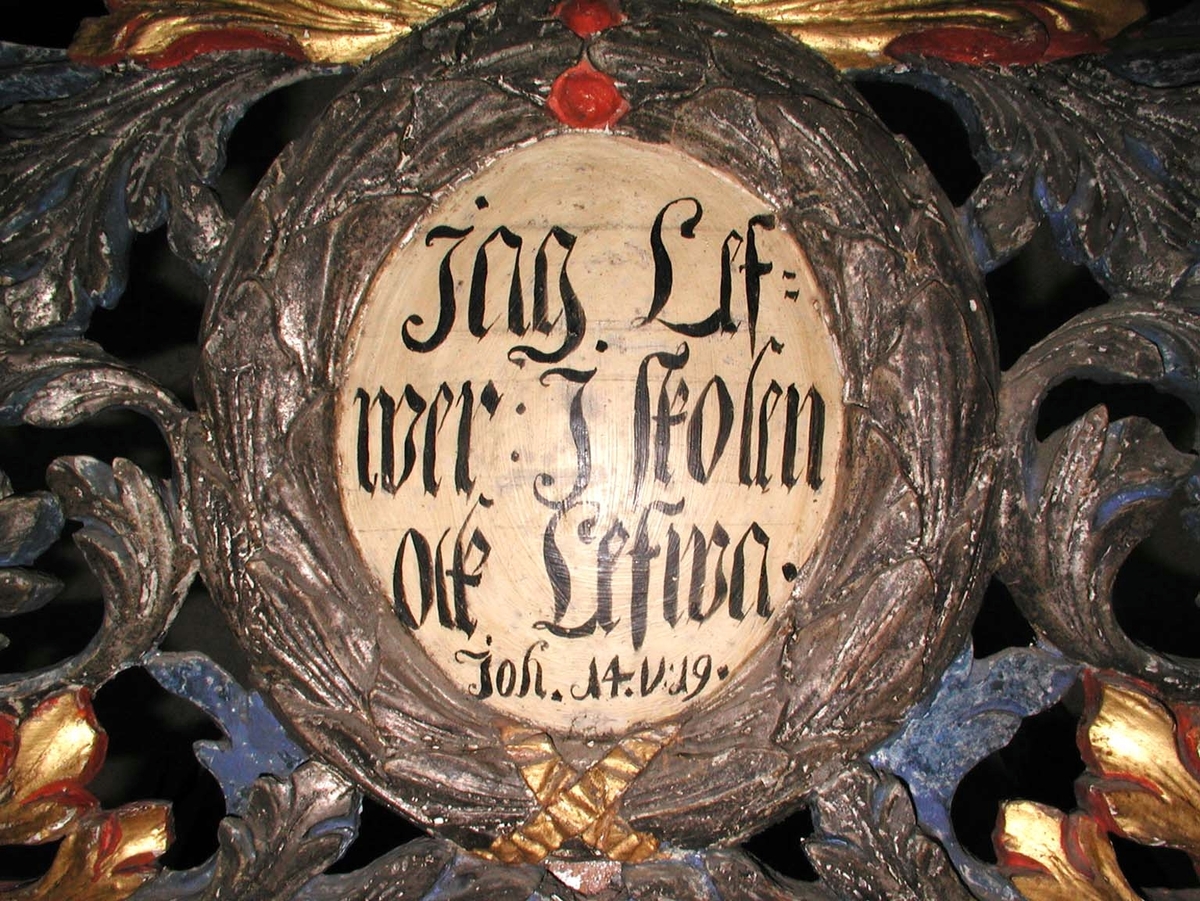 Jag Lef=
wer: I skolen
ock Lefwa.
Joh. 14. V: 19.